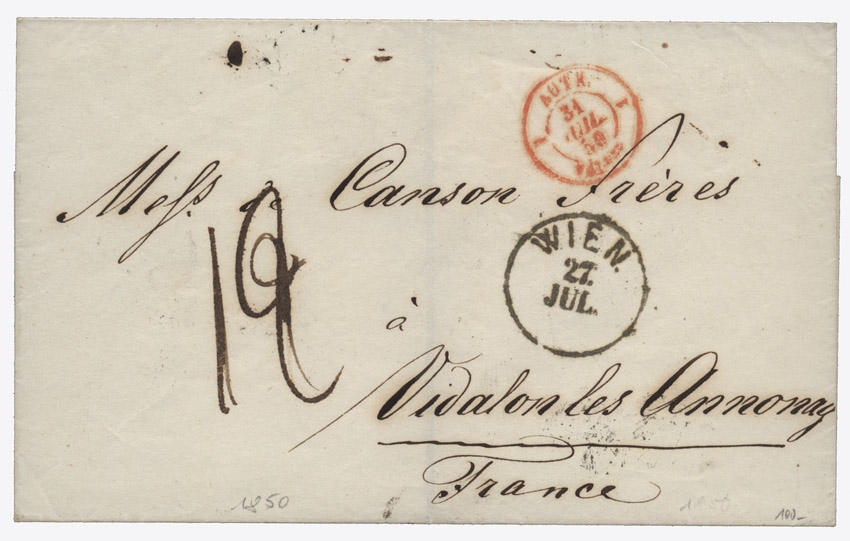 AUTR.
31
JUIL.
50
Mess. de Canson Frères
WIEN.
27.
JUL.
12
à
Vidalon les Annonay
France
1850
1850
100-